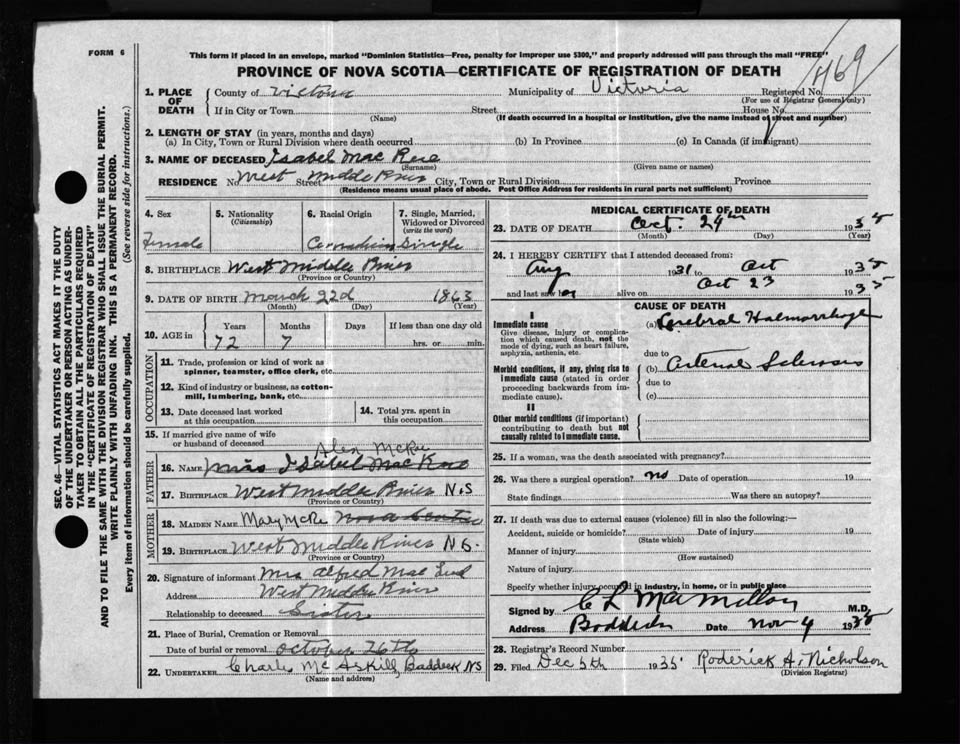 FORM 6
This form if placed in an envelope, marked "Dominion Statistics—Free, penalty for improper use $300," and properly addressed will pass through the mail "FREE"
PROVINCE OF NOVA SCOTIA—CERTIFICATE OF REGISTRATION OF DEATH
469
1. PLACE OF DEATH
County of Victoria Municipality of Victoria Registered No.
(For use of Registrar General only)
If in City or Town Street House No.
(Name) (If death occurred in a hospital or institution, give the name instead of street and number)
2. LENGTH OF STAY (in years, months and days)
(a) In City, Town or Rural Division where death occurred (b) In Province (c) In Canada (if immigrant)
3. NAME OF DECEASED Isabel Mac Rae
(Surname) (Given name or names)
RESIDENCE No West Street Middle River City, Town or Rural Division Province
(Residence means usual place of abode. Post Office Address for residents in rural parts not sufficient)
4. Sex Female
5. Nationality (Citizenship)
6. Racial Origin Canadian
7. Single, Married, Widowed or Divorced (write the word) Single
8. BIRTHPLACE West Middle River
(Province or Country)
9. DATE OF BIRTH March 22d 1863
(Month) (Day) (Year)
10. AGE in Years Months Days If less than one day old
72 7 hrs. or min.
OCCUPATION
11. Trade, profession or kind of work as spinner, teamster, office clerk, etc.
12. Kind of industry or business, as cotton-mill, lumbering, bank, etc.
13. Date deceased last worked at this occupation
14. Total yrs. spent in this occupation
15. If married give name of wife or husband of deceased
FATHER
Alex McRae
16. NAME Miss Isabel MacRae
17. BIRTHPLACE West Middle River N.S
(Province or Country)
MOTHER
18. MAIDEN NAME Mary McRae Nova Scotia
19. BIRTHPLACE West Middle River N S.
(Province or Country)
20. Signature of informant Mrs Alfred Mac Leod
Address West Middle River
Relationship to deceased Sister
21. Place of Burial, Cremation or Removal
Date of burial or removal October 26th
22. UNDERTAKER Charlie McAskill, Baddeck NS
(Name and address)
MEDICAL CERTIFICATE OF DEATH
23. DATE OF DEATH Oct. 24th 1935
(Month) (Day) (Year)
24. I HEREBY CERTIFY that I attended deceased from:
Aug 1931 to Oct 1935
and last saw her alive on Oct 23 1935
CAUSE OF DEATH
I
Immediate cause
Give disease, injury or complication which caused death, not the mode of dying, such as heart failure, asphyxia, asthenia, etc.
(a) Cerebral Haemorrhage
due to
Morbid conditions, if any, giving rise to immediate cause (stated in order proceeding backwards from immediate cause).
(b) Arterial Sclerosis
due to
(c)
II
Other morbid conditions (if important) contributing to death but not causally related to immediate cause.
25. If a woman, was the death associated with pregnancy?
26. Was there a surgical operation? no Date of operation 19
State findings Was there an autopsy?
27. If death was due to external causes (violence) fill in also the following:—
Accident, suicide or homicide? Date of injury 19
(State which)
Manner of injury
(How sustained)
Nature of injury
Specify whether injury occurred in industry, in home, or in public place
Signed by C L MacMillan M.D.
Address Baddeck Date Nov 4 1935
28. Registrar's Record Number
29. Filed Dec 5th 1935 Roderick A. Nicholson
(Division Registrar)
SEC. 46—VITAL STATISTICS ACT MAKES IT THE DUTY
OF THE UNDERTAKER OR PERSON ACTING AS UNDER-
TAKER TO OBTAIN ALL THE PARTICULARS REQUIRED
IN THE "CERTIFICATE OF REGISTRATION OF DEATH"
AND TO FILE THE SAME WITH THE DIVISION REGISTRAR WHO SHALL ISSUE THE BURIAL PERMIT.
WRITE PLAINLY WITH UNFADING INK. THIS IS A PERMANENT RECORD.
Every item of information should be carefully supplied. (See reverse side for instructions.)